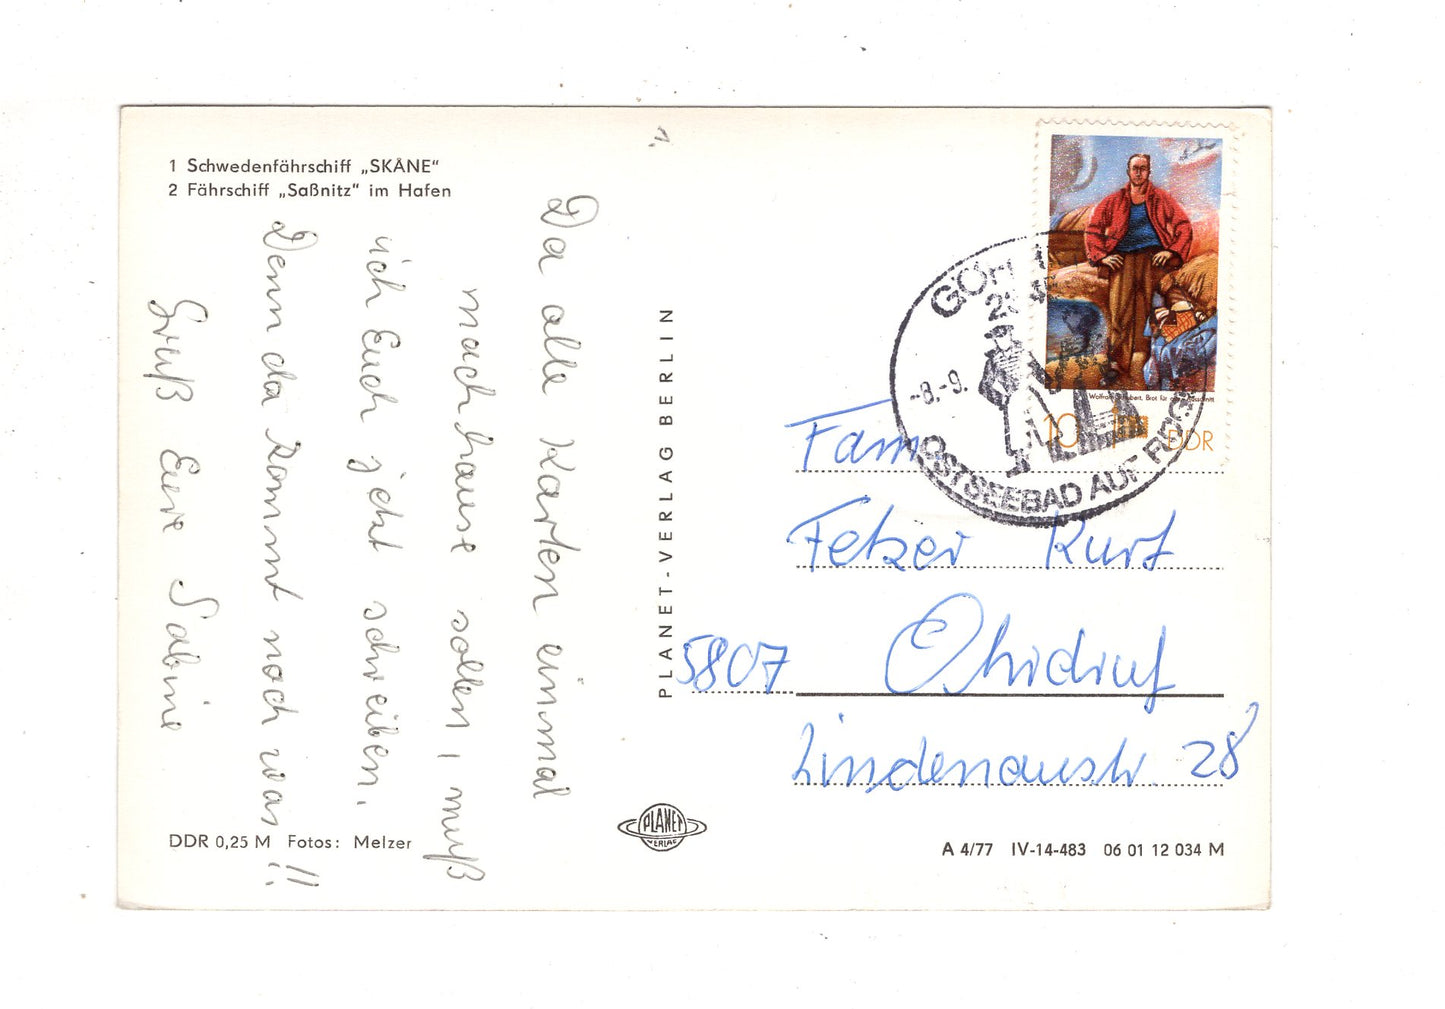 1 Schwedenfährschiff „SKÅNE“
2 Fährschiff „Saßnitz“ im Hafen
Da alle Karten einmal
nach hause sollen, muß
ich Euch jetzt schreiben.
Denn da kommt noch was!!
Gruß Eure Sabine
DDR 0,25 M Fotos: Melzer
PLANET-VERLAG BERLIN
PLANET
VERLAG
10 DDR
-8.-9.
OSTSEEBAD AUF
Fam
Fetzer Kurt
5807 Ohrdruf
Lindenaustr. 28
A 4/77 IV-14-483 06 01 12 034 M